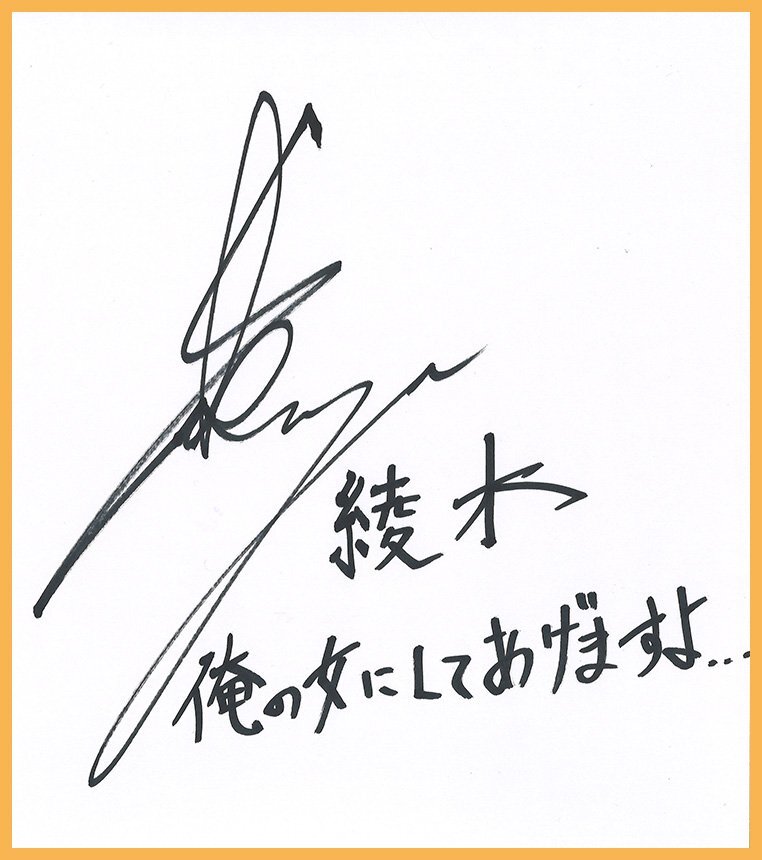 綾木
俺の女にしてあげますよ...